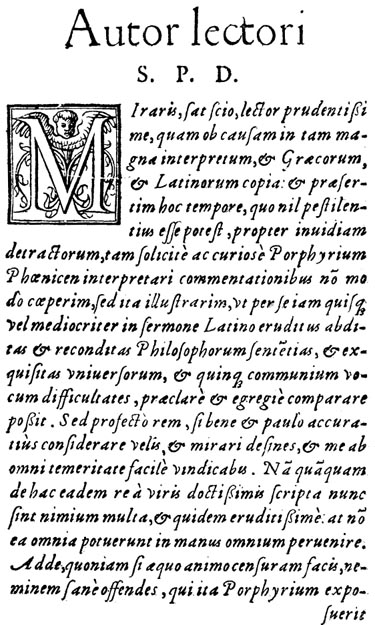 Autor lectori
S. P. D.
MIraris, sat scio, lector prudentißi
me, quam ob causam in tam ma-
gna interpretum, & Græcorum,
& Latinorum copia: & præser-
tim hoc tempore, quo nil pestilen-
tius esse potest, propter inuidiam
detractorum, tam solicitè ac curiosè Porphyrium
Phœnicen interpretari commentationibus nō mo
do cœperim, sed ita illustrarim, vt per se iam quisq;
vel mediocriter in sermone Latino eruditus abdi-
tas & reconditas Philosophorum sentētias, & ex-
quisitas vniuersorum, & quinq; communium vo-
cum difficultates, præclarè & egregiè comparare
poßit. Sed profectò rem, si bene & paulo accura-
tiùs considerare velis, & mirari desines, & me ab
omni temeritate facilè vindicabis. Nā quāquam
de hac eadem re à viris doctißimis scripta nunc
sint nimium multa, & quidem eruditißimè: at nō
ea omnia potuerunt in manus omnium peruenire.
Adde, quoniam si æquo animo censuram facis, ne-
minem sanè offendes, qui ita Porphyrium expo-
suerit